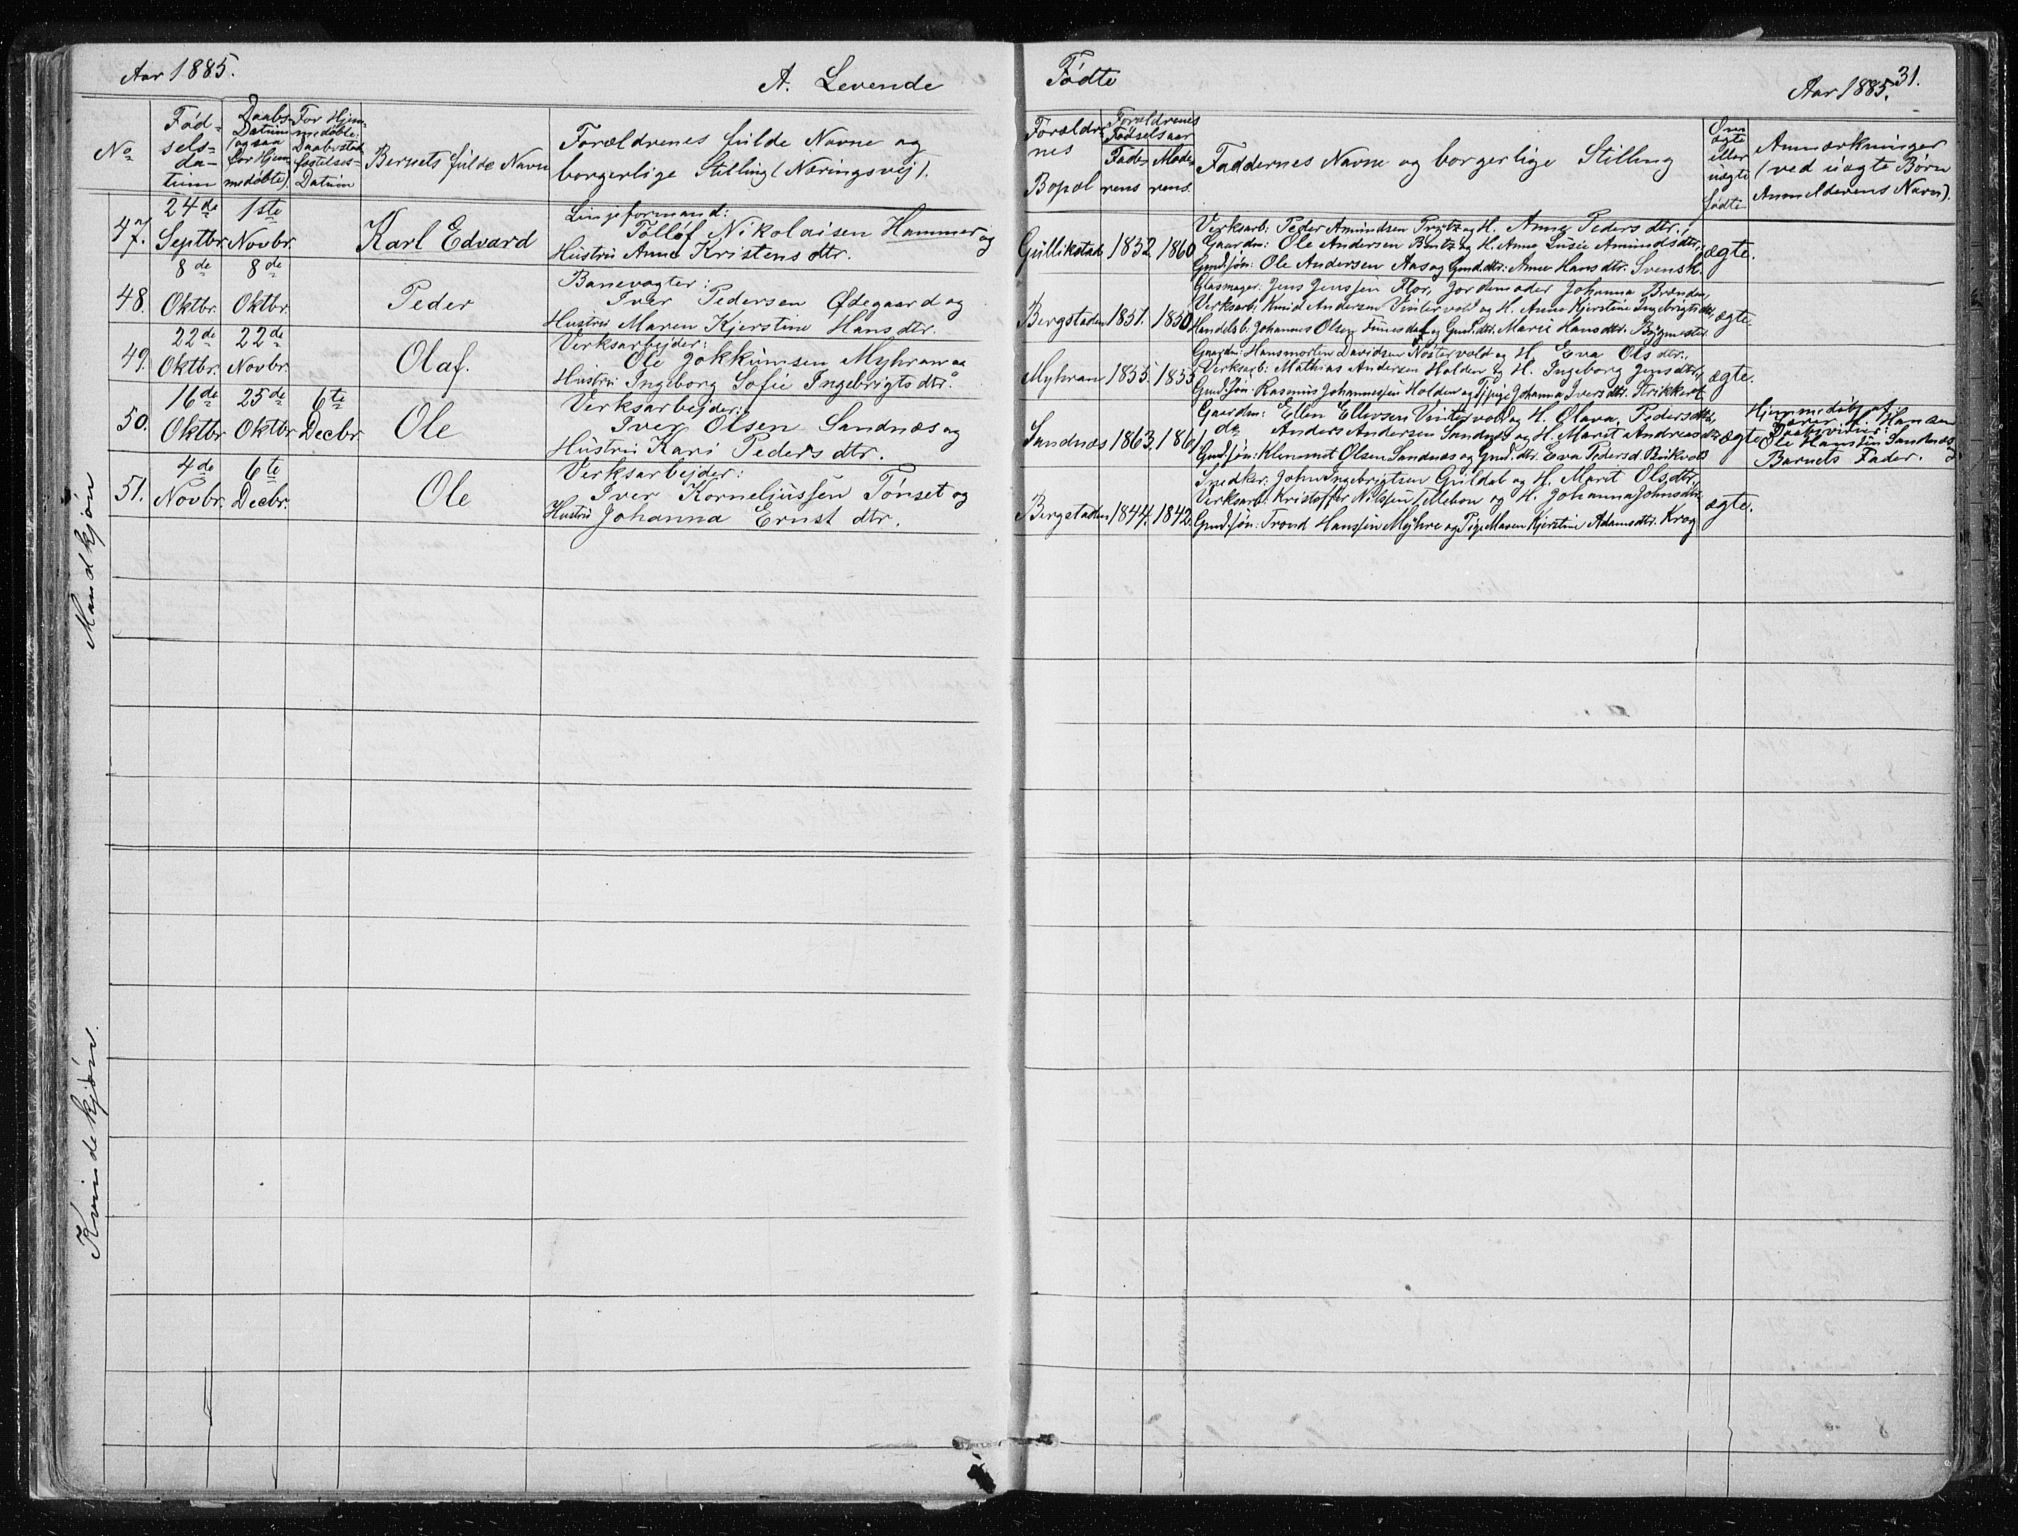 Aar 1885.
A. Levende
Fødte
Aar 1885.
31.
No
Fød-
sels-
da-
tum
Daabs-
Datum
(ogsaa
for Hjem-
medøbte).
For Hjem-
medøbte:
Daabsstad-
fæstelses-
Datum
Barnets fulde Navn
Forældrenes fulde Navne og
borgerlige Stilling (Næringsvej).
Forældre-
nes
Bopæl
Forældrenes
Fødselsaar
Fade-
rens
Mode-
rens.
Faddernes Navne og borgerlige Stilling
Om
ægte
eller
uægte
fødte
Anmærkninger
(ved uægte Børn
Anmelderens Navn).
Mandkjøn
47.
24de
Septbr.
1ste
Novbr.
Karl Edvard
Linjeformand:
Tølløf Nikolaisen Hammer og
Hustru Anne Kristensdtr.
Gullikstad
1852.
1860
Verksarb: Peder Amundsen Prytz og H. Anne Pedersdtr.,
Gaardm: Ole Andersen Bentz og H. Anne Lusie Amundsdtr.,
Gmd.søn: Ole Andersen Aas og Gmd.dtr: Anne Hansdtr. Svensk.
ægte.
48.
8de
Oktbr.
8de
Oktbr.
Peder
Banevogter:
Iver Pedersen Ødegaard og
Hustru Maren Kjerstine Hansdtr.
Bergstaden
1851.
1850.
Glasmager. Jens Jenssen Flor, Jordemoder Johanna Brænden,
Verksarb: Knud Andersen Vintervold og H. Anne Kjerstine Ingebrigtsdtr,
Handelsb: Johannes Olsen Funesdal og Gmd.dtr. Marie Hansdtr. Bygmester
ægte.
49.
22de
Oktbr.
22de
Novbr.
Olaf.
Verksarbejder:
Ole Jokkumsen Myhran og
Hustru Ingeborg Sofie Ingebrigtsdtr.
Myhran
1855.
1855
Gaardm: Hansmorten Davidsen Nøstervold og H. Eva Olsdtr.,
Verksarb: Mathias Andersen Holden og H. Ingeborg Jensdtr.,
Gmd.søn Rasmus Johannessen Holden og Pige Johanna Iversdtr.
ægte.
50.
16de
Oktbr
25de
Oktbr
6te
Decbr
Ole
Verksarbejder:
Iver Olsen Sandnæs og
Hustru Kari Pedersdtr.
Sandnæs
1863.
1861
Gaardm: Ellen Ellevsen Vintervold og H. Olava Pedersdtr,
do Anders Andersen Sandnæs og H. Marit Andreasdtr,
Gmd.søn: Klemmet Olsen Sandnæs og Gmd.dtr. Eva Pedersd.
ægte
Hjemmedøbt af
Hansen
Daabsvidner:
Ole Hansen Sandnæs og
Barnets Fader.
51.
4de
Novbr.
6te
Decbr.
Ole
Verksarbejder:
Iver Korneliussen Tønset og
Hustru Johanna Ernstdtr.
Bergstaden
1844.
1842.
Snedker. John Ingebrigtsen Guldal og H. Marit Olsdtr.,
Verksarb: Kristoffer Nilssen Jellebon og H. Johanna Johnsdtr.
Gmd.søn: Trond Hanssen Myhre og Pige Maren Kjerstine Adamsdtr. Krog
ægte.
Kvindekjøn.